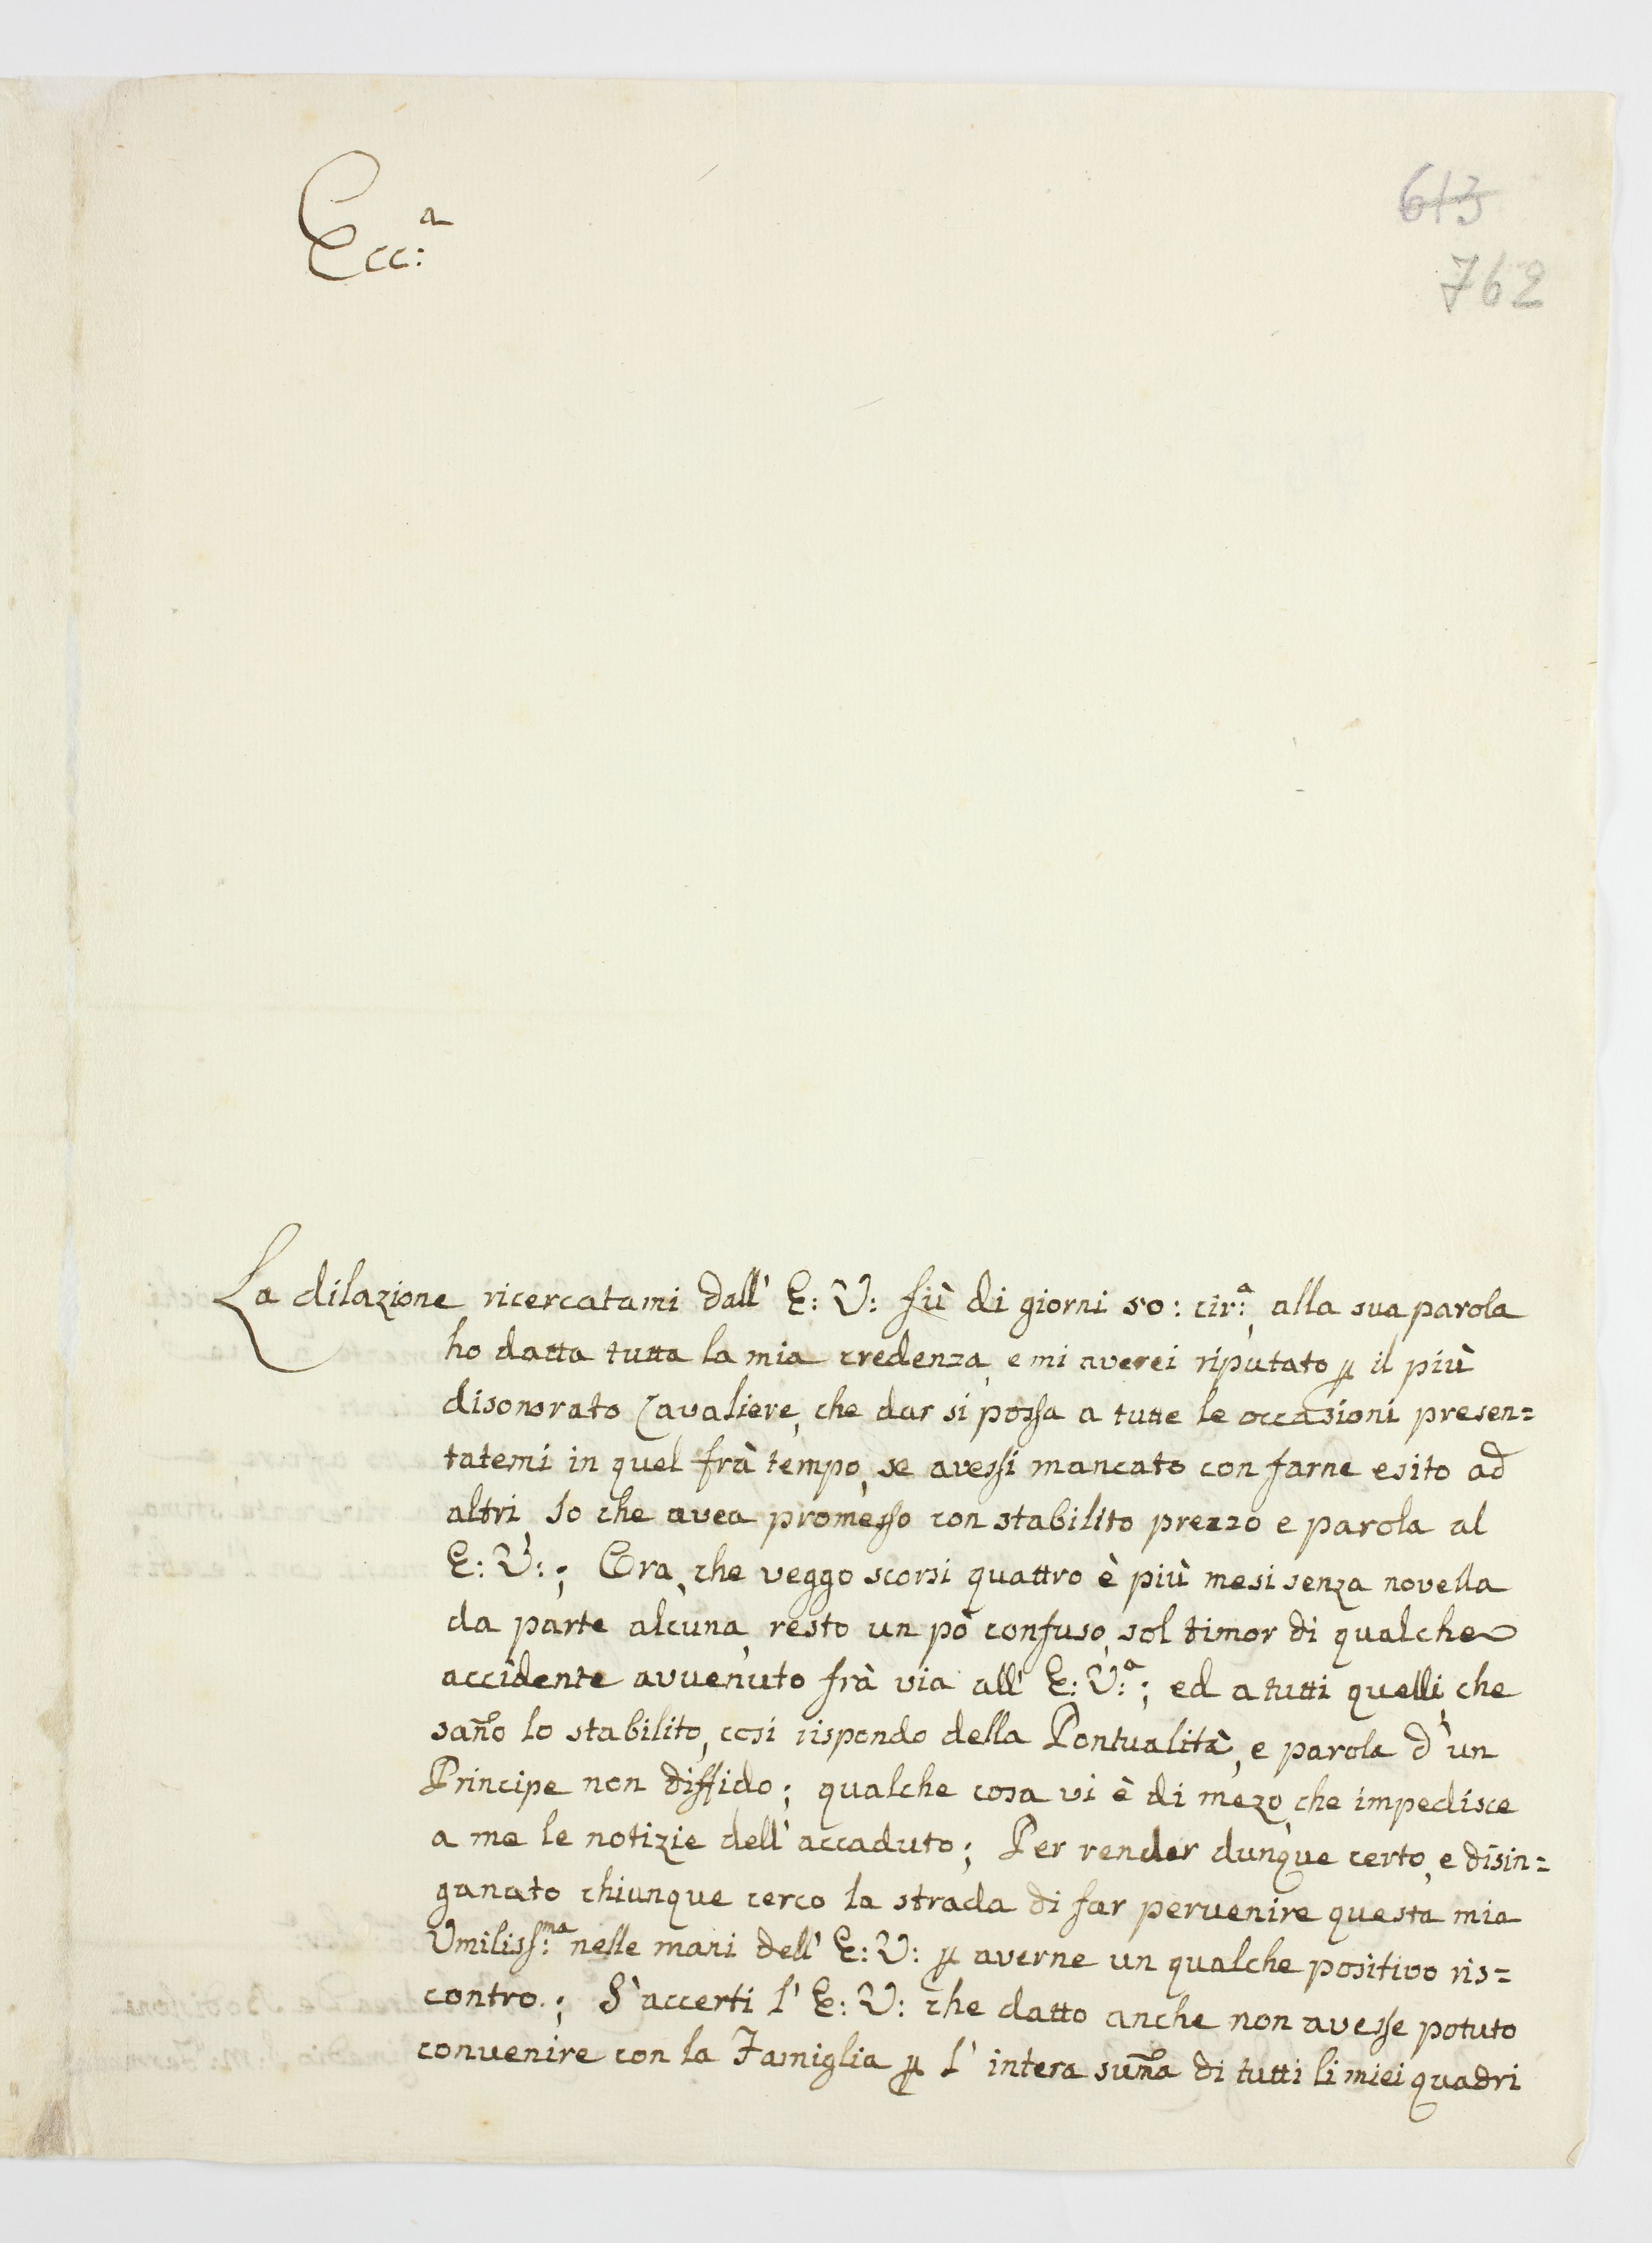 Ecc:ª
613
762
La dilazione ricercatami dall' E: V: fiù di giorni 50: cir:ª, alla sua parola
ho datta tutta la mia credenza, e mi averei riputato ꝑ il più
disonorato Cavaliere, che dar si possa a tutte le occasioni presen=
tatemi in quel frà tempo, se avessi mancato con farne esito ad
altri, Io che avea promesso con stabilito prezzo e parola al
E: V:; Ora, che veggo scorsi quattro è più mesi senza novella
da parte alcuna, resto un pò confuso, sol timor di qualche
accidente avvenuto frà via all' E: V:ª; ed a tutti quelli, che
sañо lo stabilito, così rispondo della Pontualità, e parola d'un
Principe non diffido; qualche cosa vi è di mezo, che impedisce
a me le notizie dell' accaduto; Per render dunque certo, e disin=
ganato chiunque cerco la strada di far pervenire questa mia
Vmiliss:ma nelle mani dell' E: V: ꝑ averne un qualche positivo ris=
contro.; S'accerti l' E: V: che datto anche non avesse potuto
convenire con la Famiglia ꝑ l' intera sum̃a di tutti li miei quadri